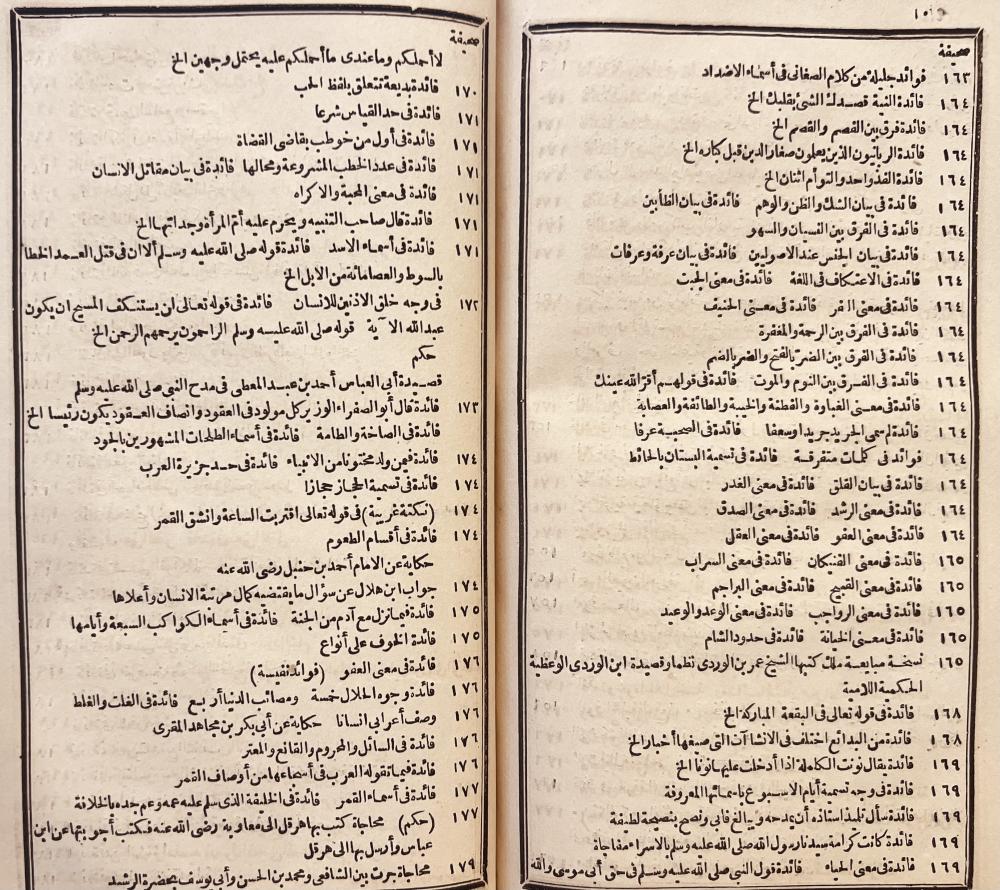 ١٠
صحيفة
١٦٣ فوائد جليلة من كلام الصغانى فى أسماء الاضداد
١٦٤ فائدة النية قصدك الشئ بقلبك الخ
١٦٤ فائدة فرق بين الفصم والقصم الخ
١٦٤ فائدة الربانيون الذين يعلمون صغار الدين قبل كباره الخ
١٦٤ فائدة الفذ واحد والتوأم اثنان الخ
١٦٤ فائدة فى بيان الشك والظن والوهم فائدة فى بيان الظأبين
١٦٤ فائدة فى الفرق بين النسيان والسهو
١٦٤ فائدة فى بيان الجنس عند الاصوليين فائدة فى بيان عرفة وعرفات
١٦٤ فائدة فى الاعتكاف فى اللغة فائدة فى معنى الجبت
١٦٤ فائدة فى معنى فائدة فى معنى الحنيف
١٦٤ فائدة فى الفرق بين الرحمة والمغفرة
١٦٤ فائدة فى الفرق بين الضر بالفتح والضر بالضم
١٦٤ فائدة فى الفرق بين النوم والموت فائدة فى قولهم أقر الله عينك
١٦٤ فائدة فى معنى الغباوة والفطنة والخيبة والطائفة والعصابة
١٦٤ فائدة لم سمى الجريد جريدا وسعفا فائدة فى الصحيبة عرفا
١٦٤ فوائد فى كلمات متفرقة فائدة فى تسمية البستان بالحائط
١٦٤ فائدة فى بيان القلق فائدة فى معنى الغدر
١٦٤ فائدة فى معنى الرشد فائدة فى معنى الصدق
١٦٤ فائدة فى معنى العفو فائدة فى معنى العقل
١٦٥ فائدة فى معنى الفنيكان فائدة فى معنى السراب
١٦٥ فائدة فى معنى القبيح فائدة فى معنى البراجم
١٦٥ فائدة فى معنى الرواجب فائدة فى معنى الوعد والوعيد
١٦٥ فائدة فى معنى الخيانة فائدة فى حدود الشام
١٦٥ نسخة مبايعة ملك كتبها الشيخ عمر بن الوردى نظما وقصيدة ابن الوردى الوعظية
الحكمية اللامية
١٦٨ فائدة فى قوله تعالى فى البقعة المباركة الخ
١٦٨ فائدة من البدائع اختلف فى الانشاآت التى صيغها أخبار الخ
١٦٩ فائدة يقال نونت الكلمة اذا أدخلت عليها نونا الخ
١٦٩ فائدة فى وجه تسمية أيام الاسبوع باسمائها المعروفة
١٦٩ فائدة سأل تلميذ استاذه أن يمدحه ويبالغ فأبى ونصح بنصيحة لطيفة
١٦٩ فائدة كانت كرامة سيدنا رسول الله صلى الله عليه وسلم بالاسراء مفاجأة
١٦٩ فائدة فى معنى الحياء فائدة قول النبى صلى الله عليه وسلم فى حق أبى موسى والله
صحيفة
لا أحملكم وما عندى ما أحملكم عليه يحتمل وجهين الخ
١٧٠ فائدة بديعة تتعلق بلفظ الحب
١٧١ فائدة فى حد القياس شرعا
١٧١ فائدة فى أول من خوطب بقاضى القضاة
١٧١ فائدة فى عدد الخطب المشروعة ومحالها فائدة فى بيان مقاتل الانسان
١٧١ فائدة فى معنى المحبة والاكراه
١٧١ فائدة قال صاحب التنبيه ويحرم عليه أم المرأة وجداتها الخ
١٧١ فائدة فى أسماء الاسد فائدة قوله صلى الله عليه وسلم ألا ان فى قتل العمد الخطا
بالسوط والعصا مائة من الابل الخ
١٧٢ فى وجه خلق الاذنين للانسان فائدة فى قوله تعالى لن يستنكف المسيح ان يكون
عبدالله الآية قوله صلى الله عليه وسلم الراحمون يرحمهم الرحمن الخ
حكم
قصيدة أبى العباس أحمد بن عبد المعطى فى مدح النبى صلى الله عليه وسلم
١٧٣ فائدة قال أبو الصقر الوزير كل مولود فى العقود وانصاف العقود يكون رئيسا الخ
فائدة فى الصاخة والطامة فائدة فى أسماء الطلحات المشهورين بالجود
١٧٤ فائدة فيمن ولد مختونا من الانبياء فائدة فى حد جزيرة العرب
١٧٤ فائدة فى تسمية الحجاز حجازا
١٧٤ (نكتة غريبة) فى قوله تعالى اقتربت الساعة وانشق القمر
١٧٤ فائدة فى أقسام الطعوم
حكاية عن الامام أحمد بن حنبل رضى الله عنه
١٧٤ جواب ابن هلال عن سؤال ما يقتضيه كمال مرتبة الانسان وأعلاها
١٧٥ فائدة فيما نزل مع آدم من الجنة فائدة فى أسماء الكواكب السبعة وأيامها
١٧٥ فائدة الخوف على أنواع
١٧٦ فائدة فى معنى العفو (فوائد نفيسة)
١٧٦ فائدة وجوه الحلال خمسة ومصائب الدنيا أربع فائدة فى الغلت والغلط
١٧٦ وصف أعرابى انسانا حكاية عن أبى بكر بن مجاهد المقرى
١٧٦ فائدة فى السائل والمحروم والقانع والمعتر
١٧٦ فائدة فيما تقوله العرب فى أسماعها من أوصاف القمر
١٧٧ فائدة فى أسماء القمر فائدة فى الخليفة الذى سلم عليه عمه وعم جده بالخلافة
١٧٧ (حكم) محاجاة كتب بها هرقل الى معاوية رضى الله عنه فكتب أجوبتها عن ابن
عباس وأرسل بها الى هرقل
١٧٩ محاجاة جرت بين الشافعى ومحمد بن الحسن وأبى يوسف بحضرة الرشيد